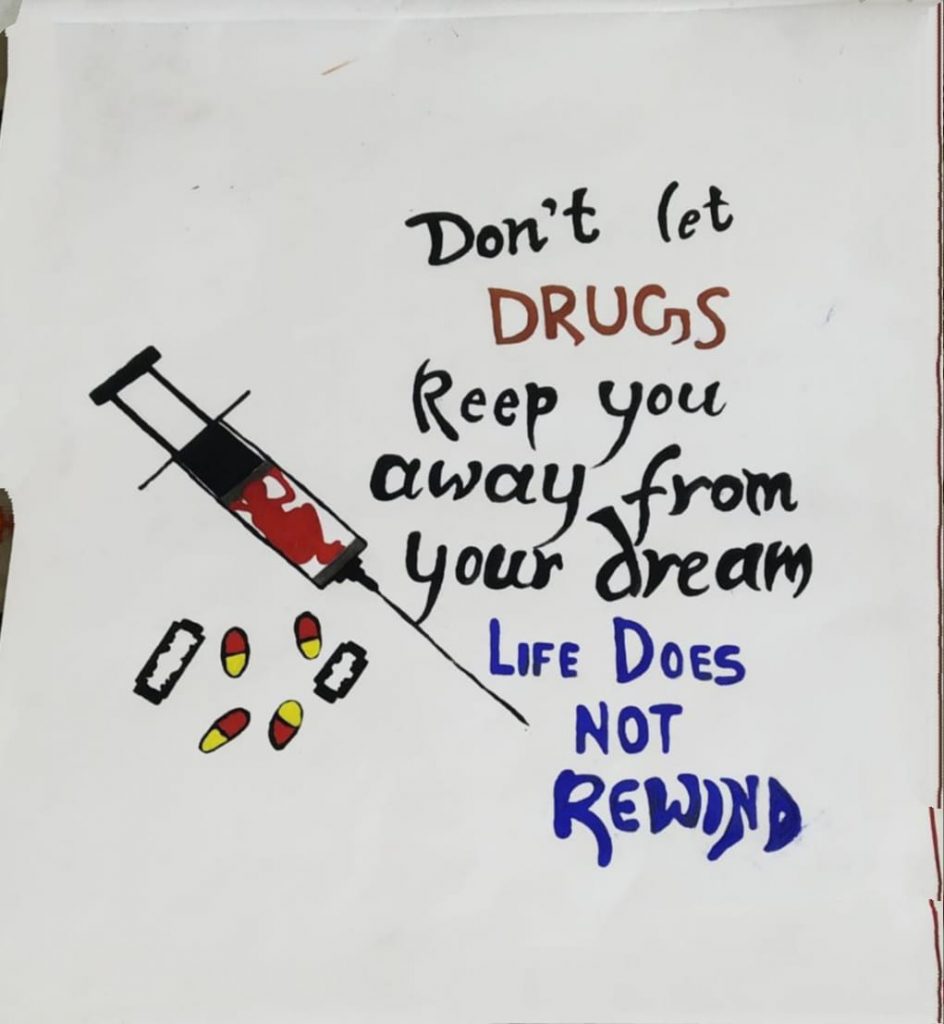 Don't let
DRUGS
Keep you
away from
your dream
LIFE DOES
NOT
REWIND